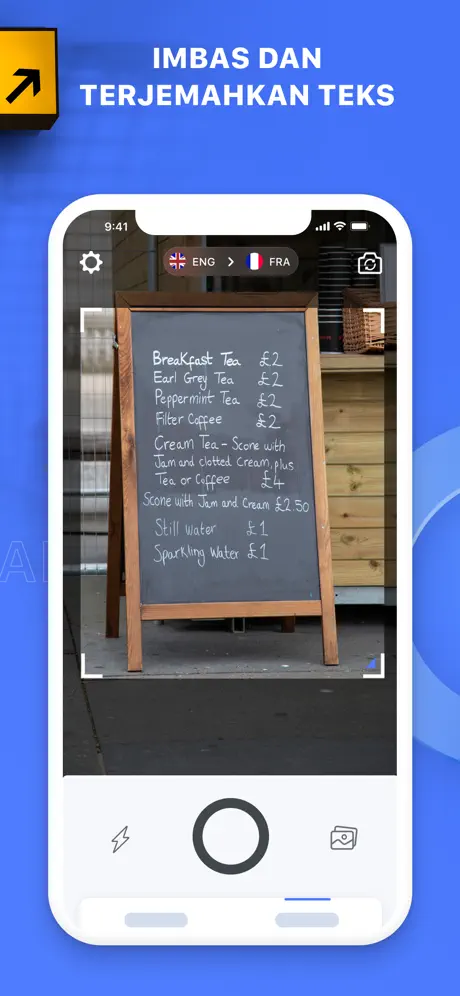 IMBAS DAN
TERJEMAHKAN TEKS
9:41
ENG > FRA
BreaKfast Tea £2
Earl Grey Tea £2
Peppermint Tea £2
Filter Coffee £2
Cream Tea - Scone with
Jam and clotted Cream, plus
Tea or Coffee £4
Scone with Jam and Cream £2.50
Still water £1
Sparkling Water £1